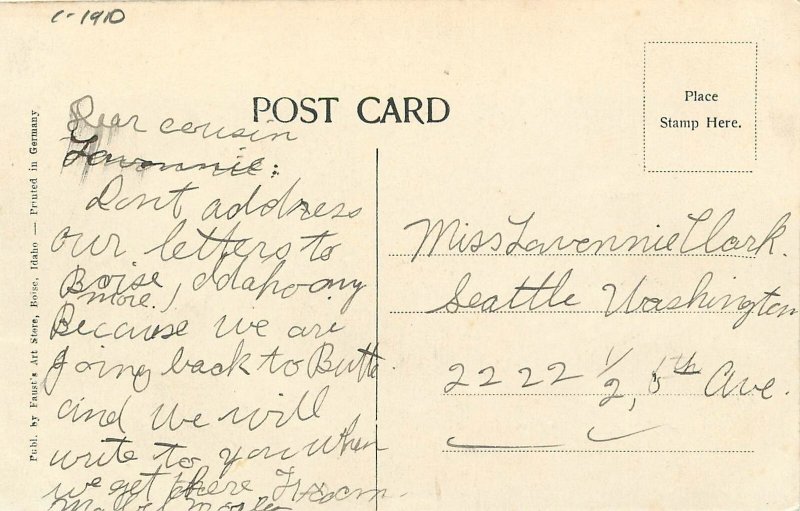 c-1910
POST CARD
Place
Stamp Here.
Publ. by Faust's Art Store, Boise, Idaho — Printed in Germany
Dear cousin
Lavonnie:
Dont address
our letters to
Boise, Idaho any
more.
Because we are
going back to Butte
and we will
write to you when
we get there From
Mabel
Miss Lavennie Clark.
Seattle Washington
2222 1/2, 5th Ave.